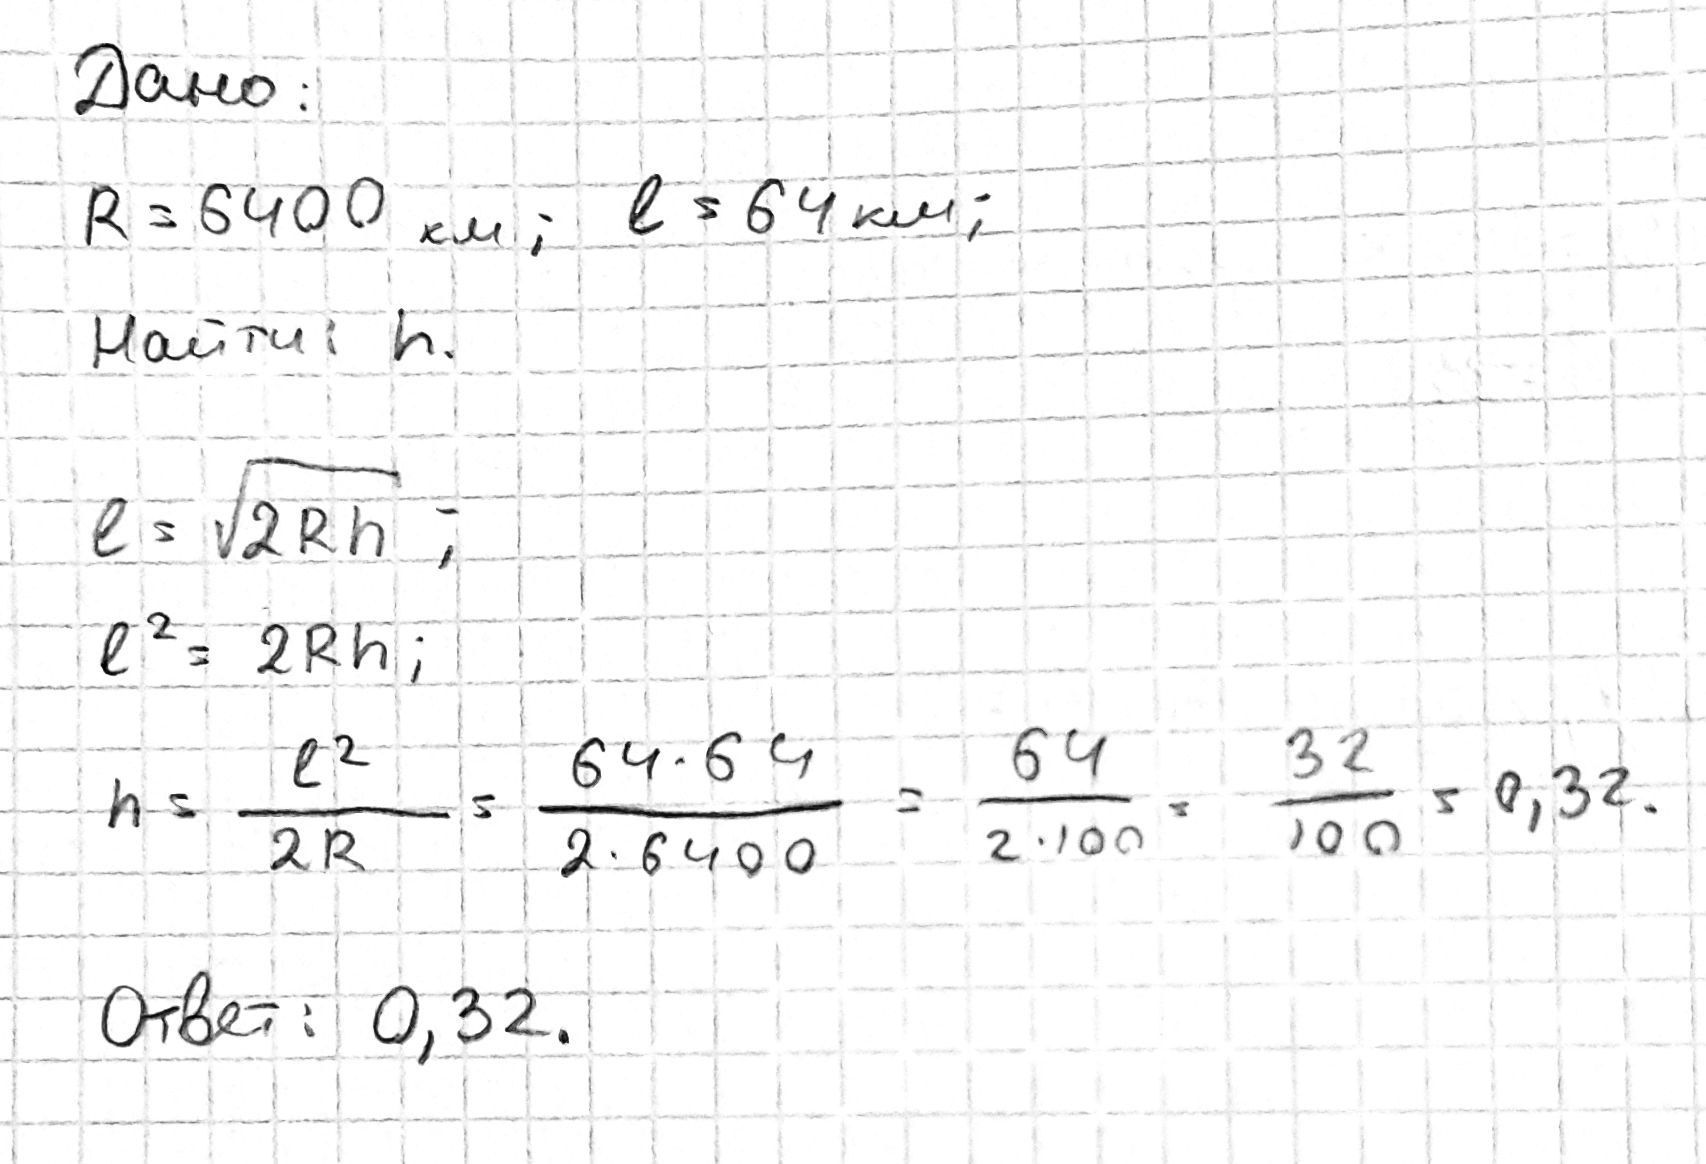 Дано:
R = 6400 км; l = 64 км;
Найти: h.
l = √2Rh ;
l² = 2Rh;
h = l²/2R = 64·64/2·6400 = 64/2·100 = 32/100 = 0,32.
Ответ: 0,32.